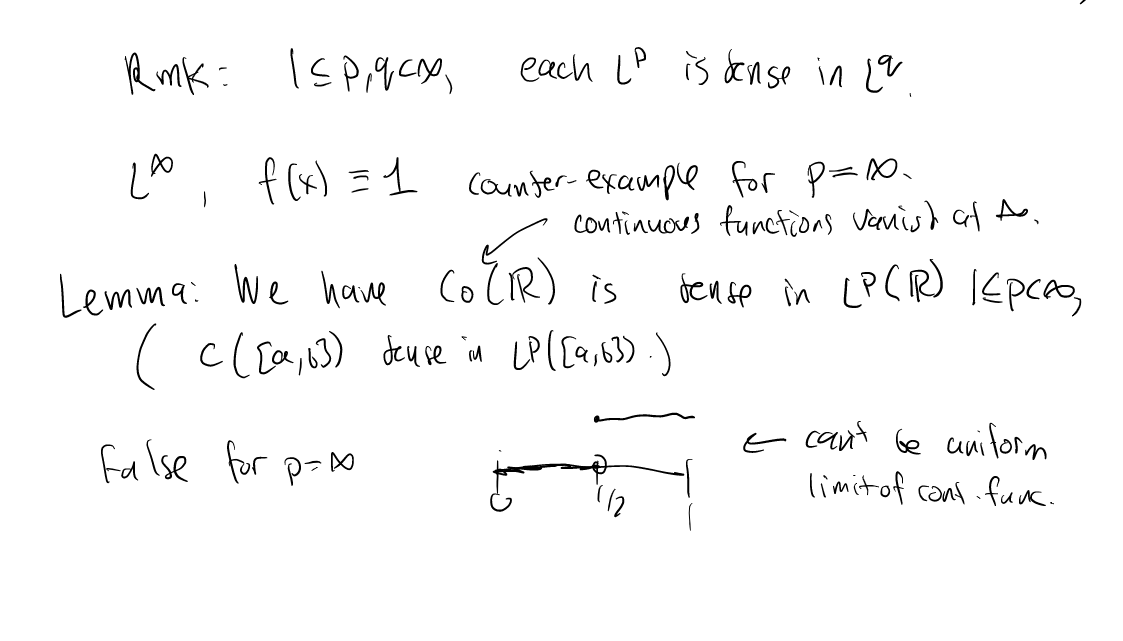 Rmk: 1≤p,q<∞, each L^p is dense in L^q.
L^∞, f(x) ≡ 1 counter-example for p=∞.
continuous functions vanish at ∞.
Lemma: We have C₀(ℝ) is dense in L^p(ℝ) 1≤p<∞,
( C([a,b]) dense in L^p([a,b]).)
False for p=∞
0 1/2 1
← can't be uniform
limit of cont. func.